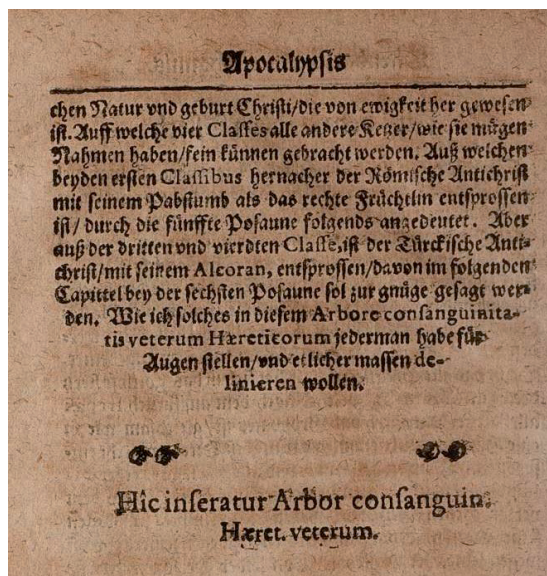 Apocalypsis
chen Natur vnd geburt Christi/die von ewigkeit her gewesen
ist. Auff welche vier Classes alle andere Ketzer/wie sie mügen
Nahmen haben/fein künnen gebracht werden. Auß welchen
beyden ersten Classibus hernacher der Römische Antichrist
mit seinem Pabstumb als das rechte Früchtlin entsprossen
ist/ durch die fünffte Posaune folgends angedeutet. Aber
auß der dritten vnd vierdten Classe, ist der Türckische Anti-
christ/mit seinem Alcoran, entsprossen/davon im folgenden
Capittel bey der sechsten Posaune sol zur gnüge gesagt wer-
den. Wie ich solches in diesem Arbore consanguinita-
tis veterum Hæreticorum jederman habe für
Augen stellen/vnd etlicher massen de-
linieren wollen.
Hîc inseratur Arbor consanguin.
Hæret. veterum.